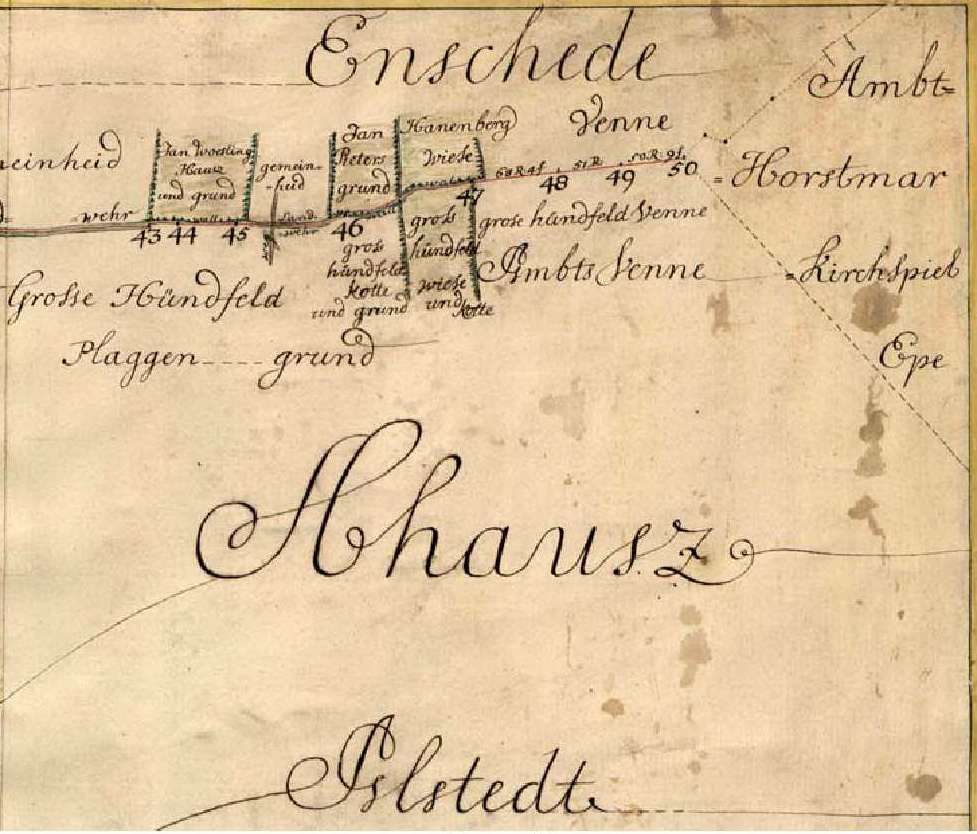 Enschede
Ambt=
Venne
einheid
Jan Woesting
Hausz
und grund
gemein-
Jan
Pieters
grund
Hanenberg
Wiese
51 R
50 R. 9 f.
=Horstmar
wehr
Land
wehr
43 44 45 46 47 48 49 50
gross
hündfeld
kotte
und grund
gross
hündfeld
wiese
und kotte
grose hündfeld Venne
Ambts Venne
=Kirchspiel
Grosse Hündfeld
Plaggen---- grund
Epe
Ahausz